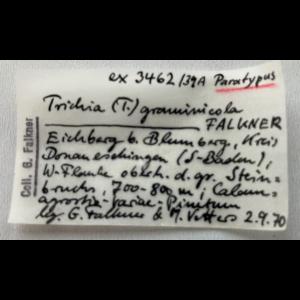 ex 3462/39A Paratypus
Trichia (T.) graminicola
FALKNER
Eichberg b. Blumberg, Kreis
Donaueschingen (S-Baden);
W-Flanke oberh. d. gr. Stein-
bruchs, 700-800 m; Calam-
agrostio-variae-Pinetum
lg. G. Falkner & M. Vetters 2.9.70
Coll. G. Falkner